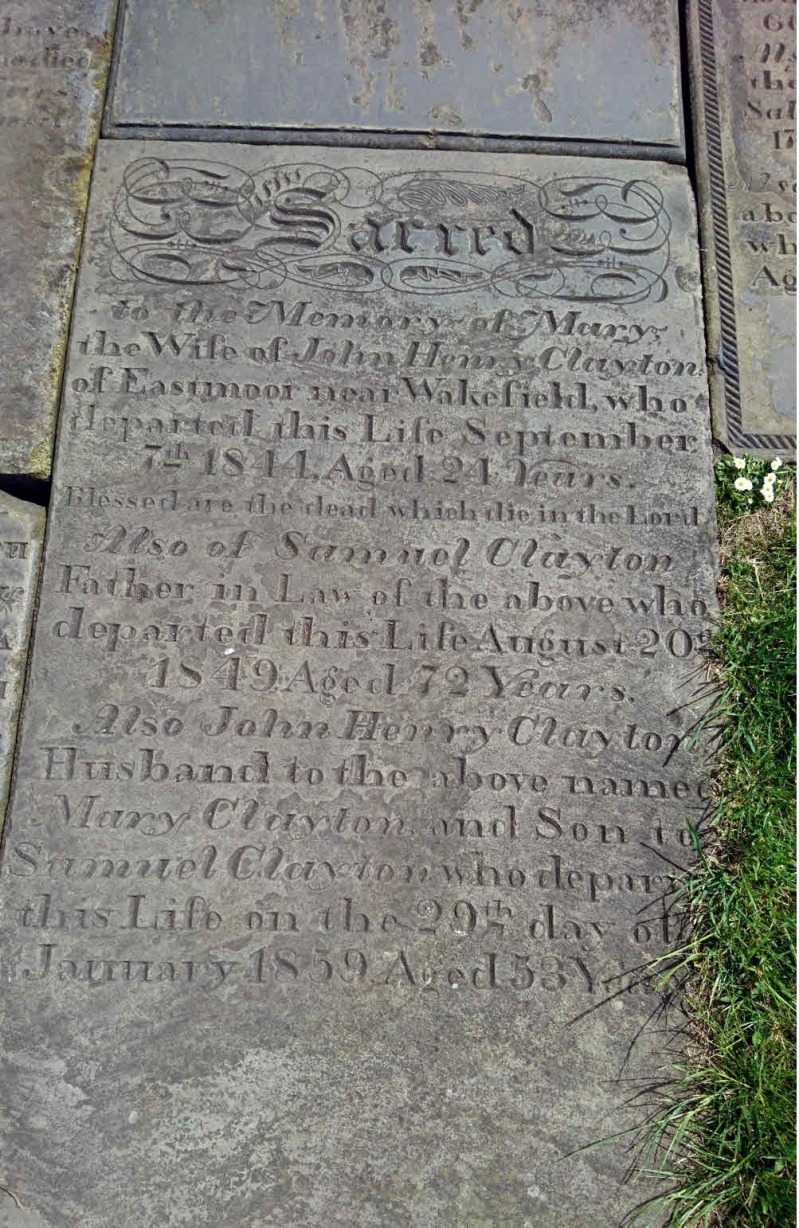 have
died
Sacred
to the Memory of Mary,
the Wife of John Henry Clayton
of Eastmoor near Wakefield, who
departed this Life September
7th 1844, Aged 24 Years.
Blessed are the dead which die in the Lord
Also of Samuel Clayton
Father in Law of the above who
departed this Life August 20th
1849 Aged 72 Years.
Also John Henry Clayton
Husband to the above named
Mary Clayton and Son to
Samuel Clayton who depar
this Life on the 29th day of
January 1859 Aged 53 Years
the
Sal
17
abo
wh
Ag